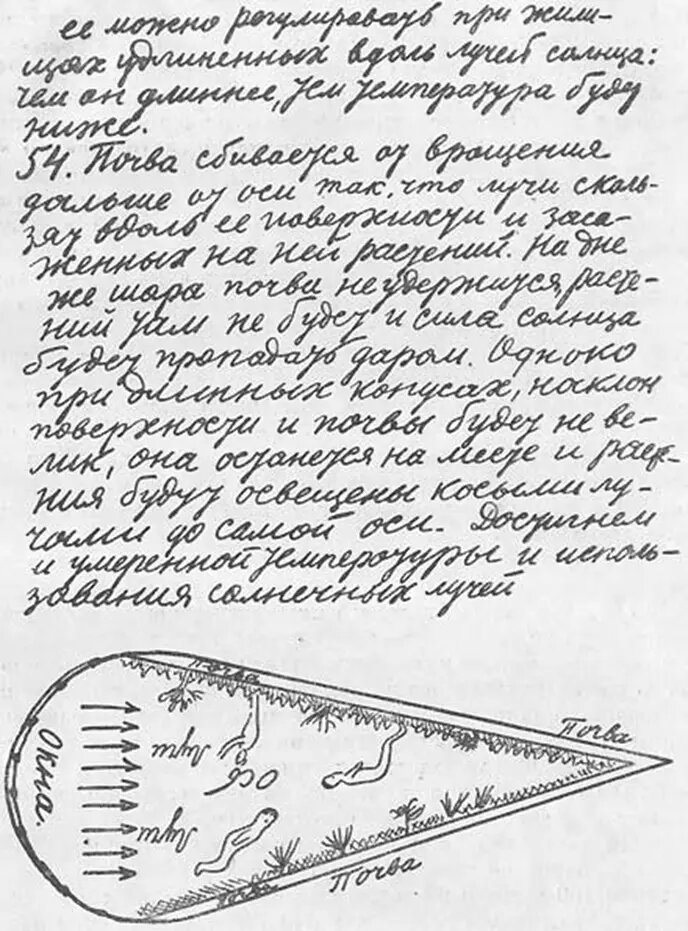 ее можно регулировать при жили-
щах удлиненных вдоль лучей солнца:
чем он длиннее, тем температура будет
ниже.
54. Почва сбивается от вращения
дальше от оси так, что лучи сколь-
зят вдоль ее поверхности и заса-
женных на ней растений. На дне
же шара почва не удержится, расте-
ний там не будет и сила солнца
будет пропадать даром. Одноко
при длинных конусах, наклон
поверхности и почвы будет не ве-
лик, она останется на месте и расте-
ния будут освещены косыми лу-
чами до самой оси. Достигнем
и умеренной температуры и исполь-
зования солнечных лучей
Почва
Почва
Окна.
Лучи
Ось
Лучи
Почва
Почва